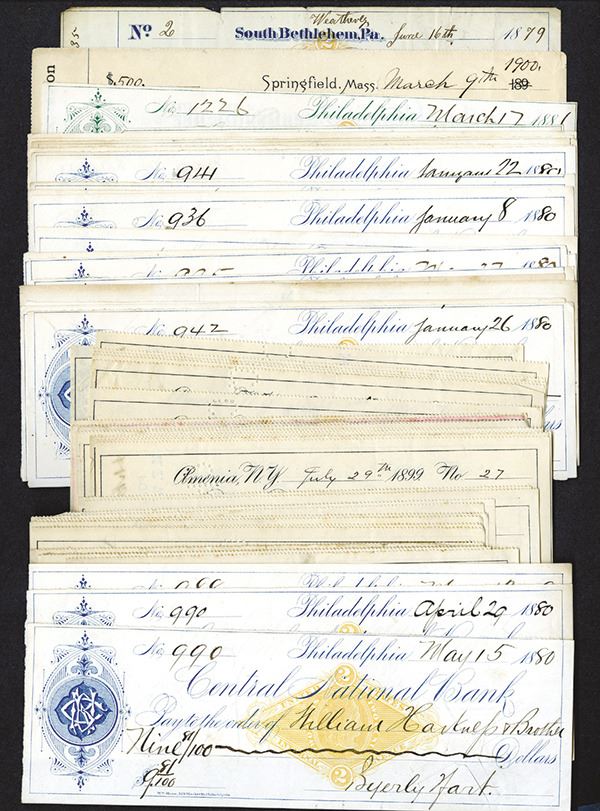 Weatherly
No 2 South Bethlehem, Pa. June 16th 1879
35
on
$500. Springfield, Mass. March 9th 1900. 189
No. 1226 Philadelphia March 17 1881
No. 941 Philadelphia 22 1880
No. 936 Philadelphia January 8 1880
No. Philadelphia 27 1880
No. 942 Philadelphia January 26 1880
Dollars
Amenia, N.Y. July 29th 1899 No 27
No. Philadelphia
No. 990 Philadelphia April 29 1880
No. 990 Philadelphia May 15 1880
Central National Bank
Pay to the order of William Harkness & Brother
Nine 81/100 Dollars
$9.81/100 Byerly Hart.
2
2